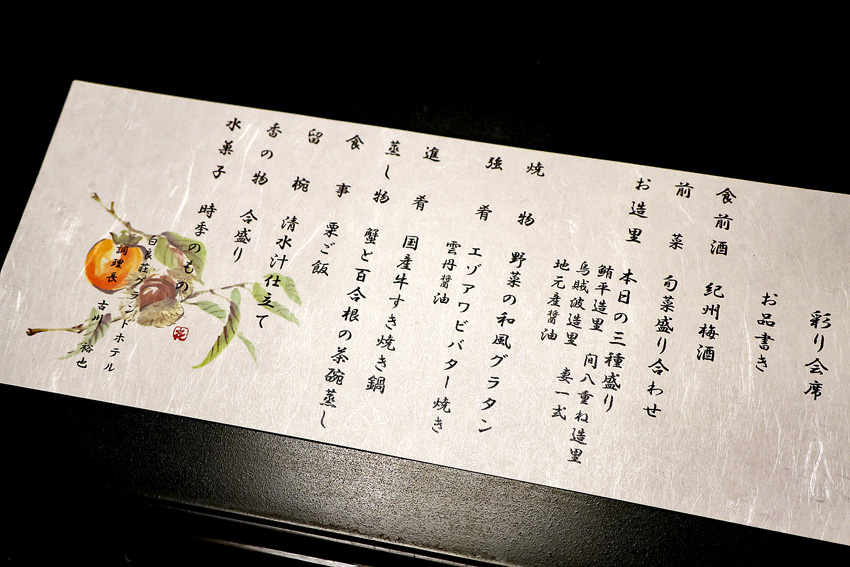 彩り会席
お品書き
食前酒 紀州梅酒
前菜 旬菜盛り合わせ
お造里 本日の三種盛り
鮪平造里 間八重ね造里
烏賊波造里 妻一式
地元産醤油
焼物 野菜の和風グラタン
強肴 エゾアワビバター焼き
雲丹醤油
進肴 国産牛すき焼き鍋
蒸し物 蟹と百合根の茶碗蒸し
食事 栗ご飯
留椀 清水汁仕立て
香の物 合盛り
水菓子 時季のもの
白良荘グランドホテル
調理長 古川 裕也